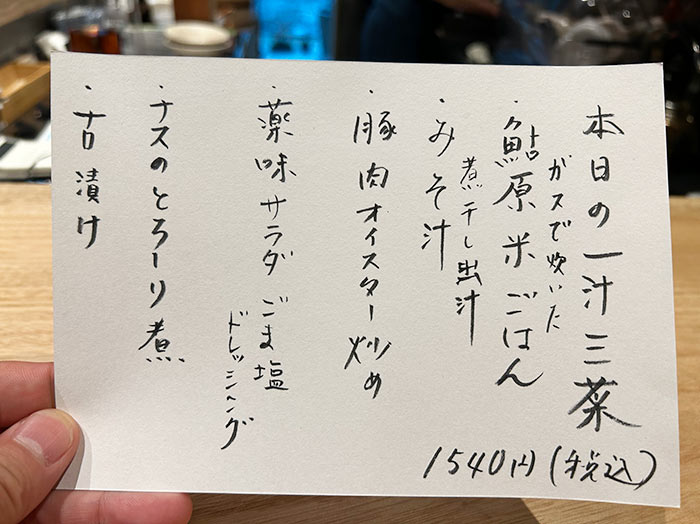 本日の一汁三菜
ガスで炊いた
・鮎原米ごはん
煮干し出汁
・みそ汁
・豚肉オイスター炒め
・薬味サラダ ごま塩
ドレッシング
・ナスのとろーり煮
・古漬け
1540円(税込)